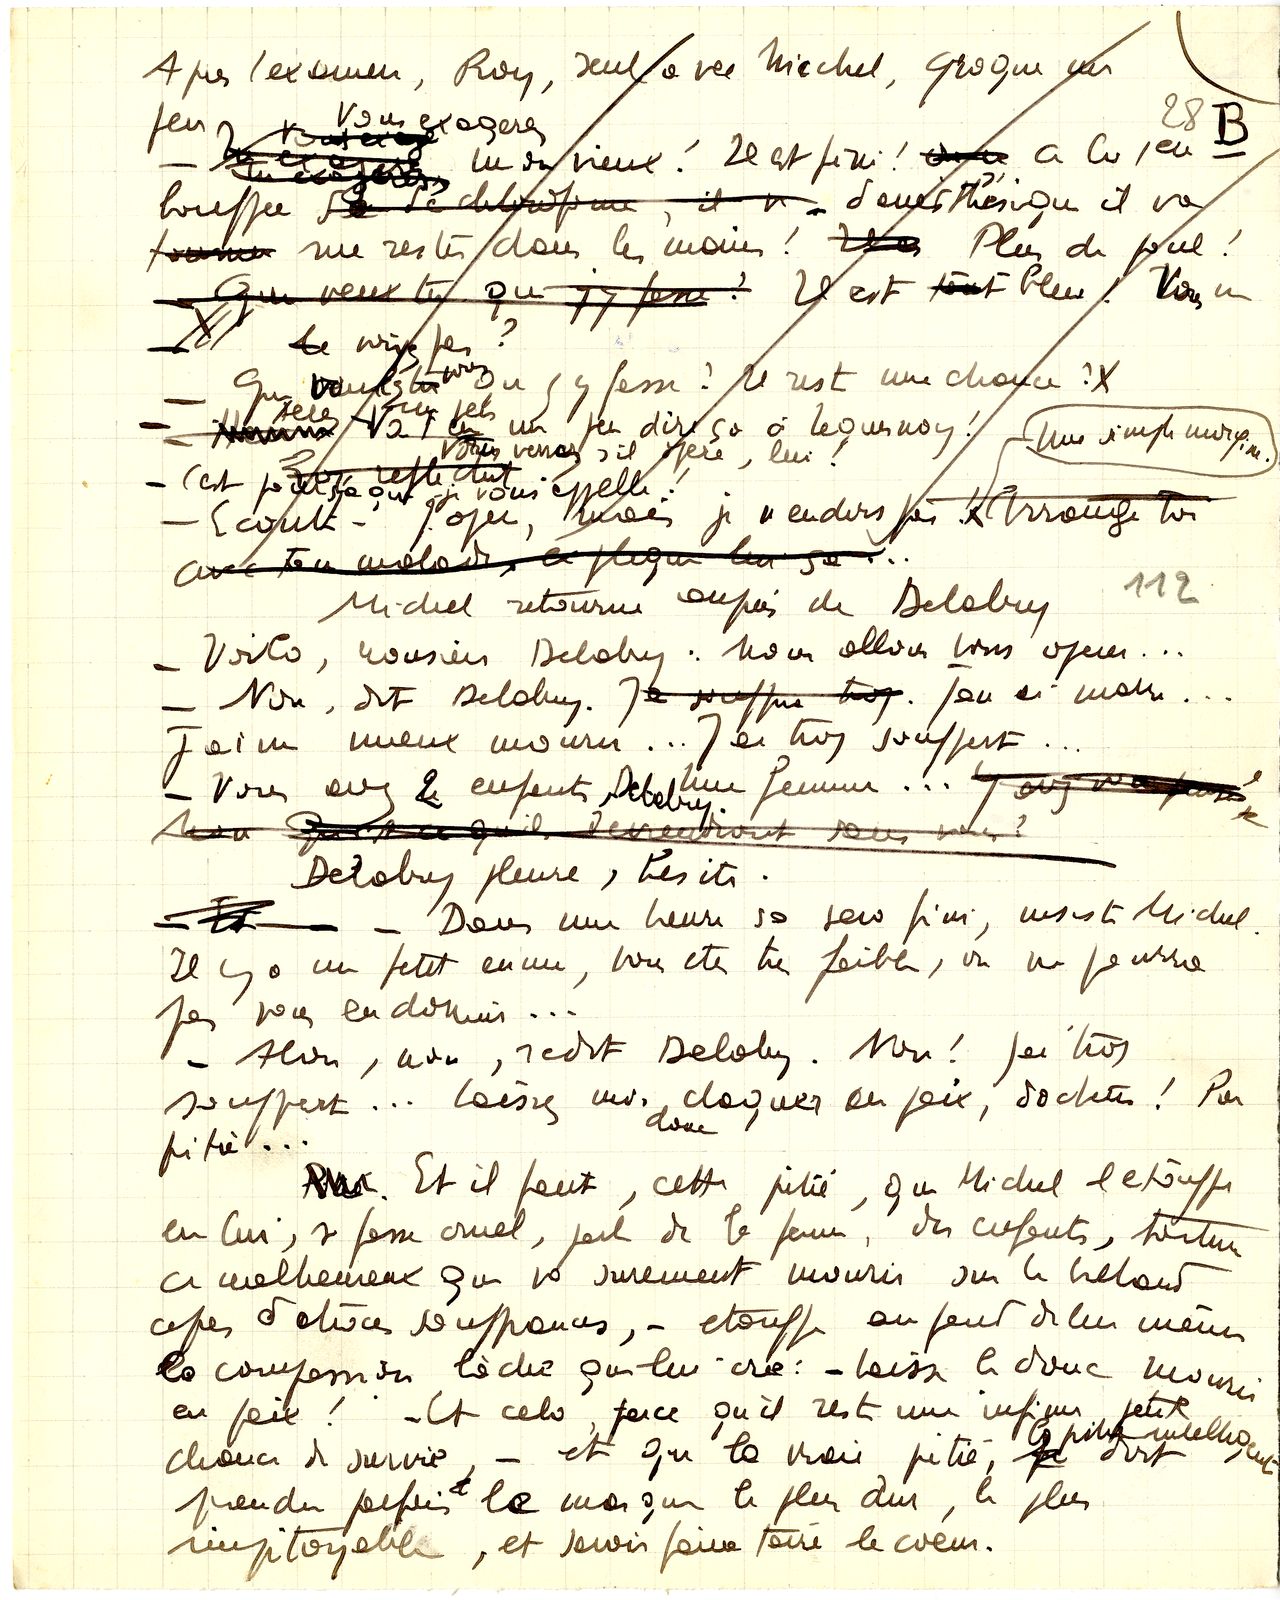 Après l'examen, Roy, seul avec Michel, grogne un
28 B
peu
Vous exagérez
— mon vieux ! Il est fini ! à la 1ère
bouffée de chloroforme, il v d'anesthésique il va
me rester dans les mains ! Plus de pouls !
— Que veux tu que j'y fasse ? Il est tout bleu ! Vous ne
le voyez pas ?
— Que voulez vous que j'y fasse ? Il reste une chance ?
— Va t'en un peu dire ça à Lequesnoy !
Vous verrez s'il opère, lui !
Une simple morphine.
— C'est pour ça que je vous appelle !
— Ecoute — J'opère, mais je n'endors pas ! Arrange toi
avec ton malade, explique lui ça...
112
Michel retourne auprès de Delobry
— Voilà, monsieur Delobry. Nous allons vous opérer...
— Non, dit Delobry. Je souffre trop. J'en ai marre...
J'aime mieux mourir... J'ai trop souffert...
— Vous avez 2 enfants, Delobry. Une femme...
Qu'est-ce qu'ils deviendront sans vous ?
Delobry pleure, hésite.
— Dans une heure ça sera fini, insiste Michel.
Il y a un petit ennui, vous êtes très faible, on ne pourra
pas vous endormir...
— Alors, non, redit Delobry. Non ! J'ai trop
souffert... Laissez moi donc claquer en paix, docteur ! Par
pitié...
Et il faut, cette pitié, que Michel l'étouffe
en lui, se fasse cruel, parle de la femme, des enfants, torture
ce malheureux qui va surement mourir sur le billard
après d'atroces souffrances, — étouffe au fond de lui même
la compassion lâche qui lui crie : — Laisse le donc mourir
en paix ! — Et cela, parce qu'il reste une infime petite
chance de survie, — et que la vraie pitié, la pitié intelligente doit
prendre parfois le masque le plus dur, le plus
impitoyable, et savoir faire taire le coeur.